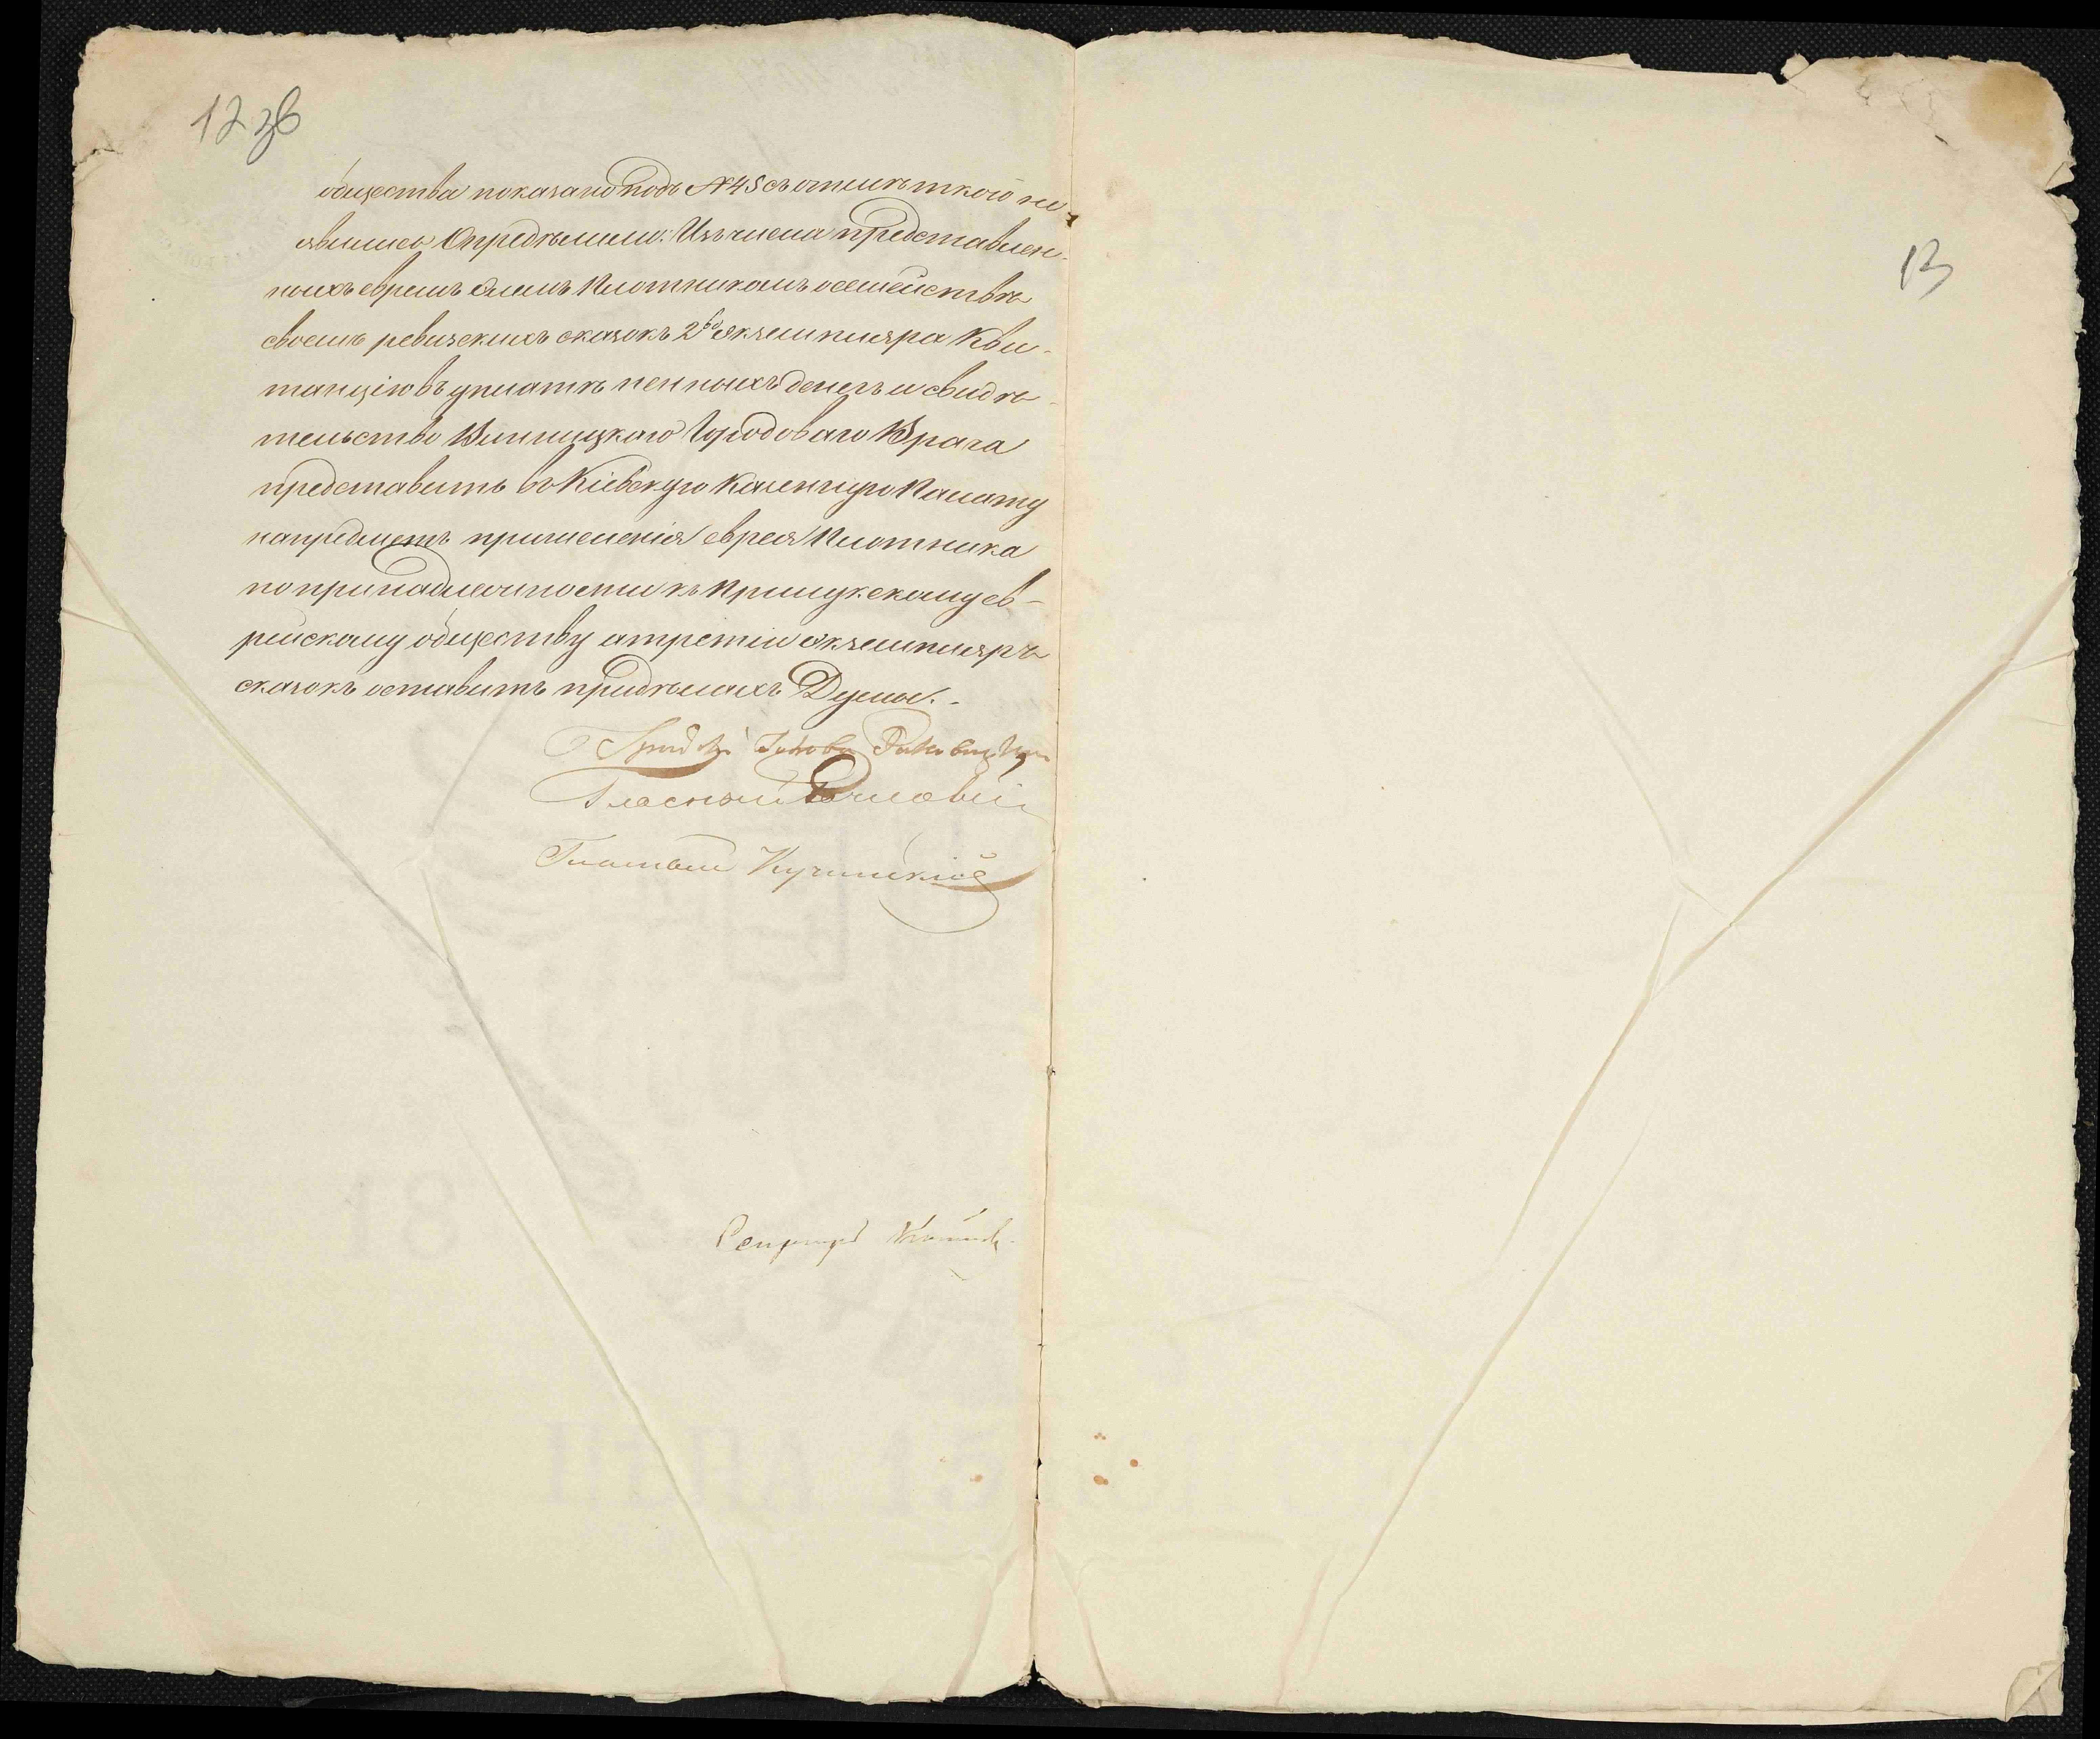 12 зв
общества показано подъ №45 съ отмѣткою не-
явились Опредѣлили: Изъ числа представлен-
ныхъ евреемъ Плотникомъ о семействѣ
своемъ ревизскихъ сказокъ 2 экземпляра Кви-
танцію въ уплатѣ пенныхъ денегъ и свидѣ-
тельство Винницкаго Городоваго Врача
представить въ Кіевскую Казенную Палату
на предметъ причисленія еврея Плотника
по принадлежности къ Прилукскому ев-
рейскому обществу а третій экземпляръ
сказокъ оставить при дѣлахъ Думы.
Гласный
Гласный
Секретарь
13